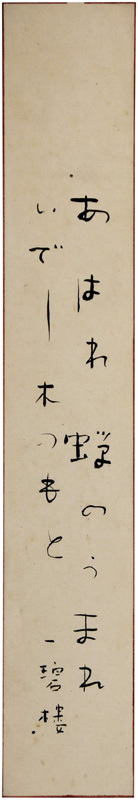 あはれ蝉のうまれ
いでし木のもと
一碧楼